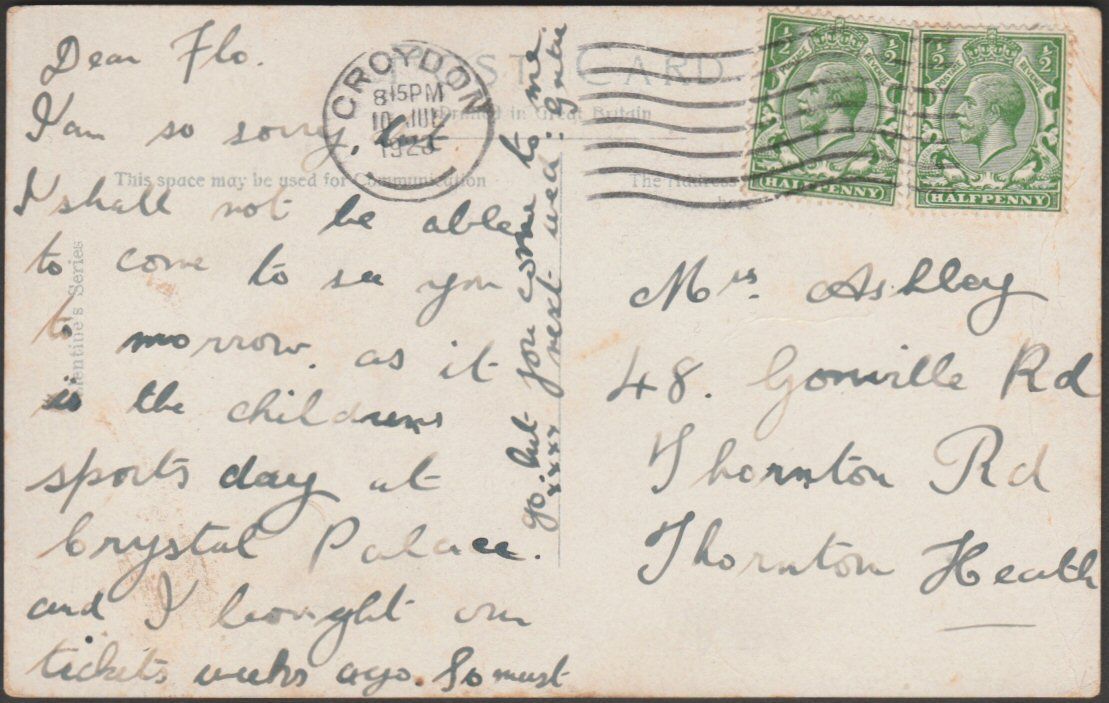 POST CARD
Printed in Great Britain
This space may be used for Communication
The Address
Valentine's Series
CROYDON
8 15PM
10 JUL
½ ½
POSTAGE REVENUE
HALFPENNY
½ ½
POSTAGE REVENUE
HALFPENNY
Dear Flo.
I am so sorry, but
I shall not be able
to come to see you
to morrow. as it
is the childrens
sports day at
Crystal Palace.
and I bought our
tickets weeks ago. So must
go. but you come to me
xxxx next wed:
Mrs. Ashley
48. Gonville Rd
Thornton Rd
Thornton Heath